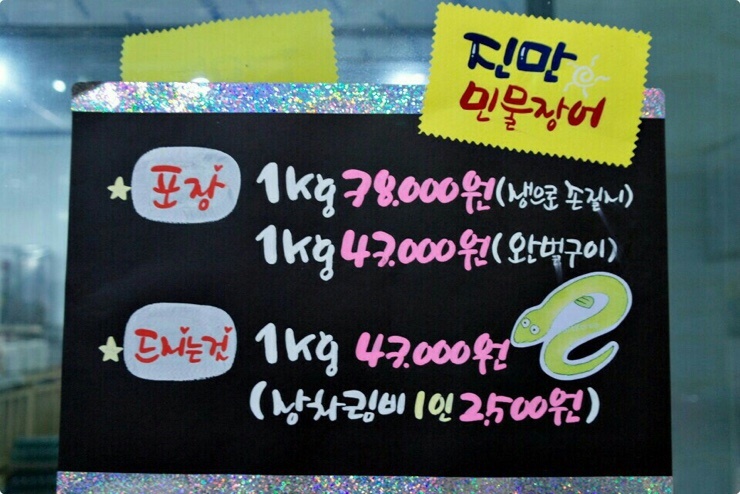 진만
민물장어
포장 1kg 38.000원(생으로 손질시)
1kg 43.000원(완벌구이)
드시는건 1kg 43.000원
(상차림비 1인 2,500원)